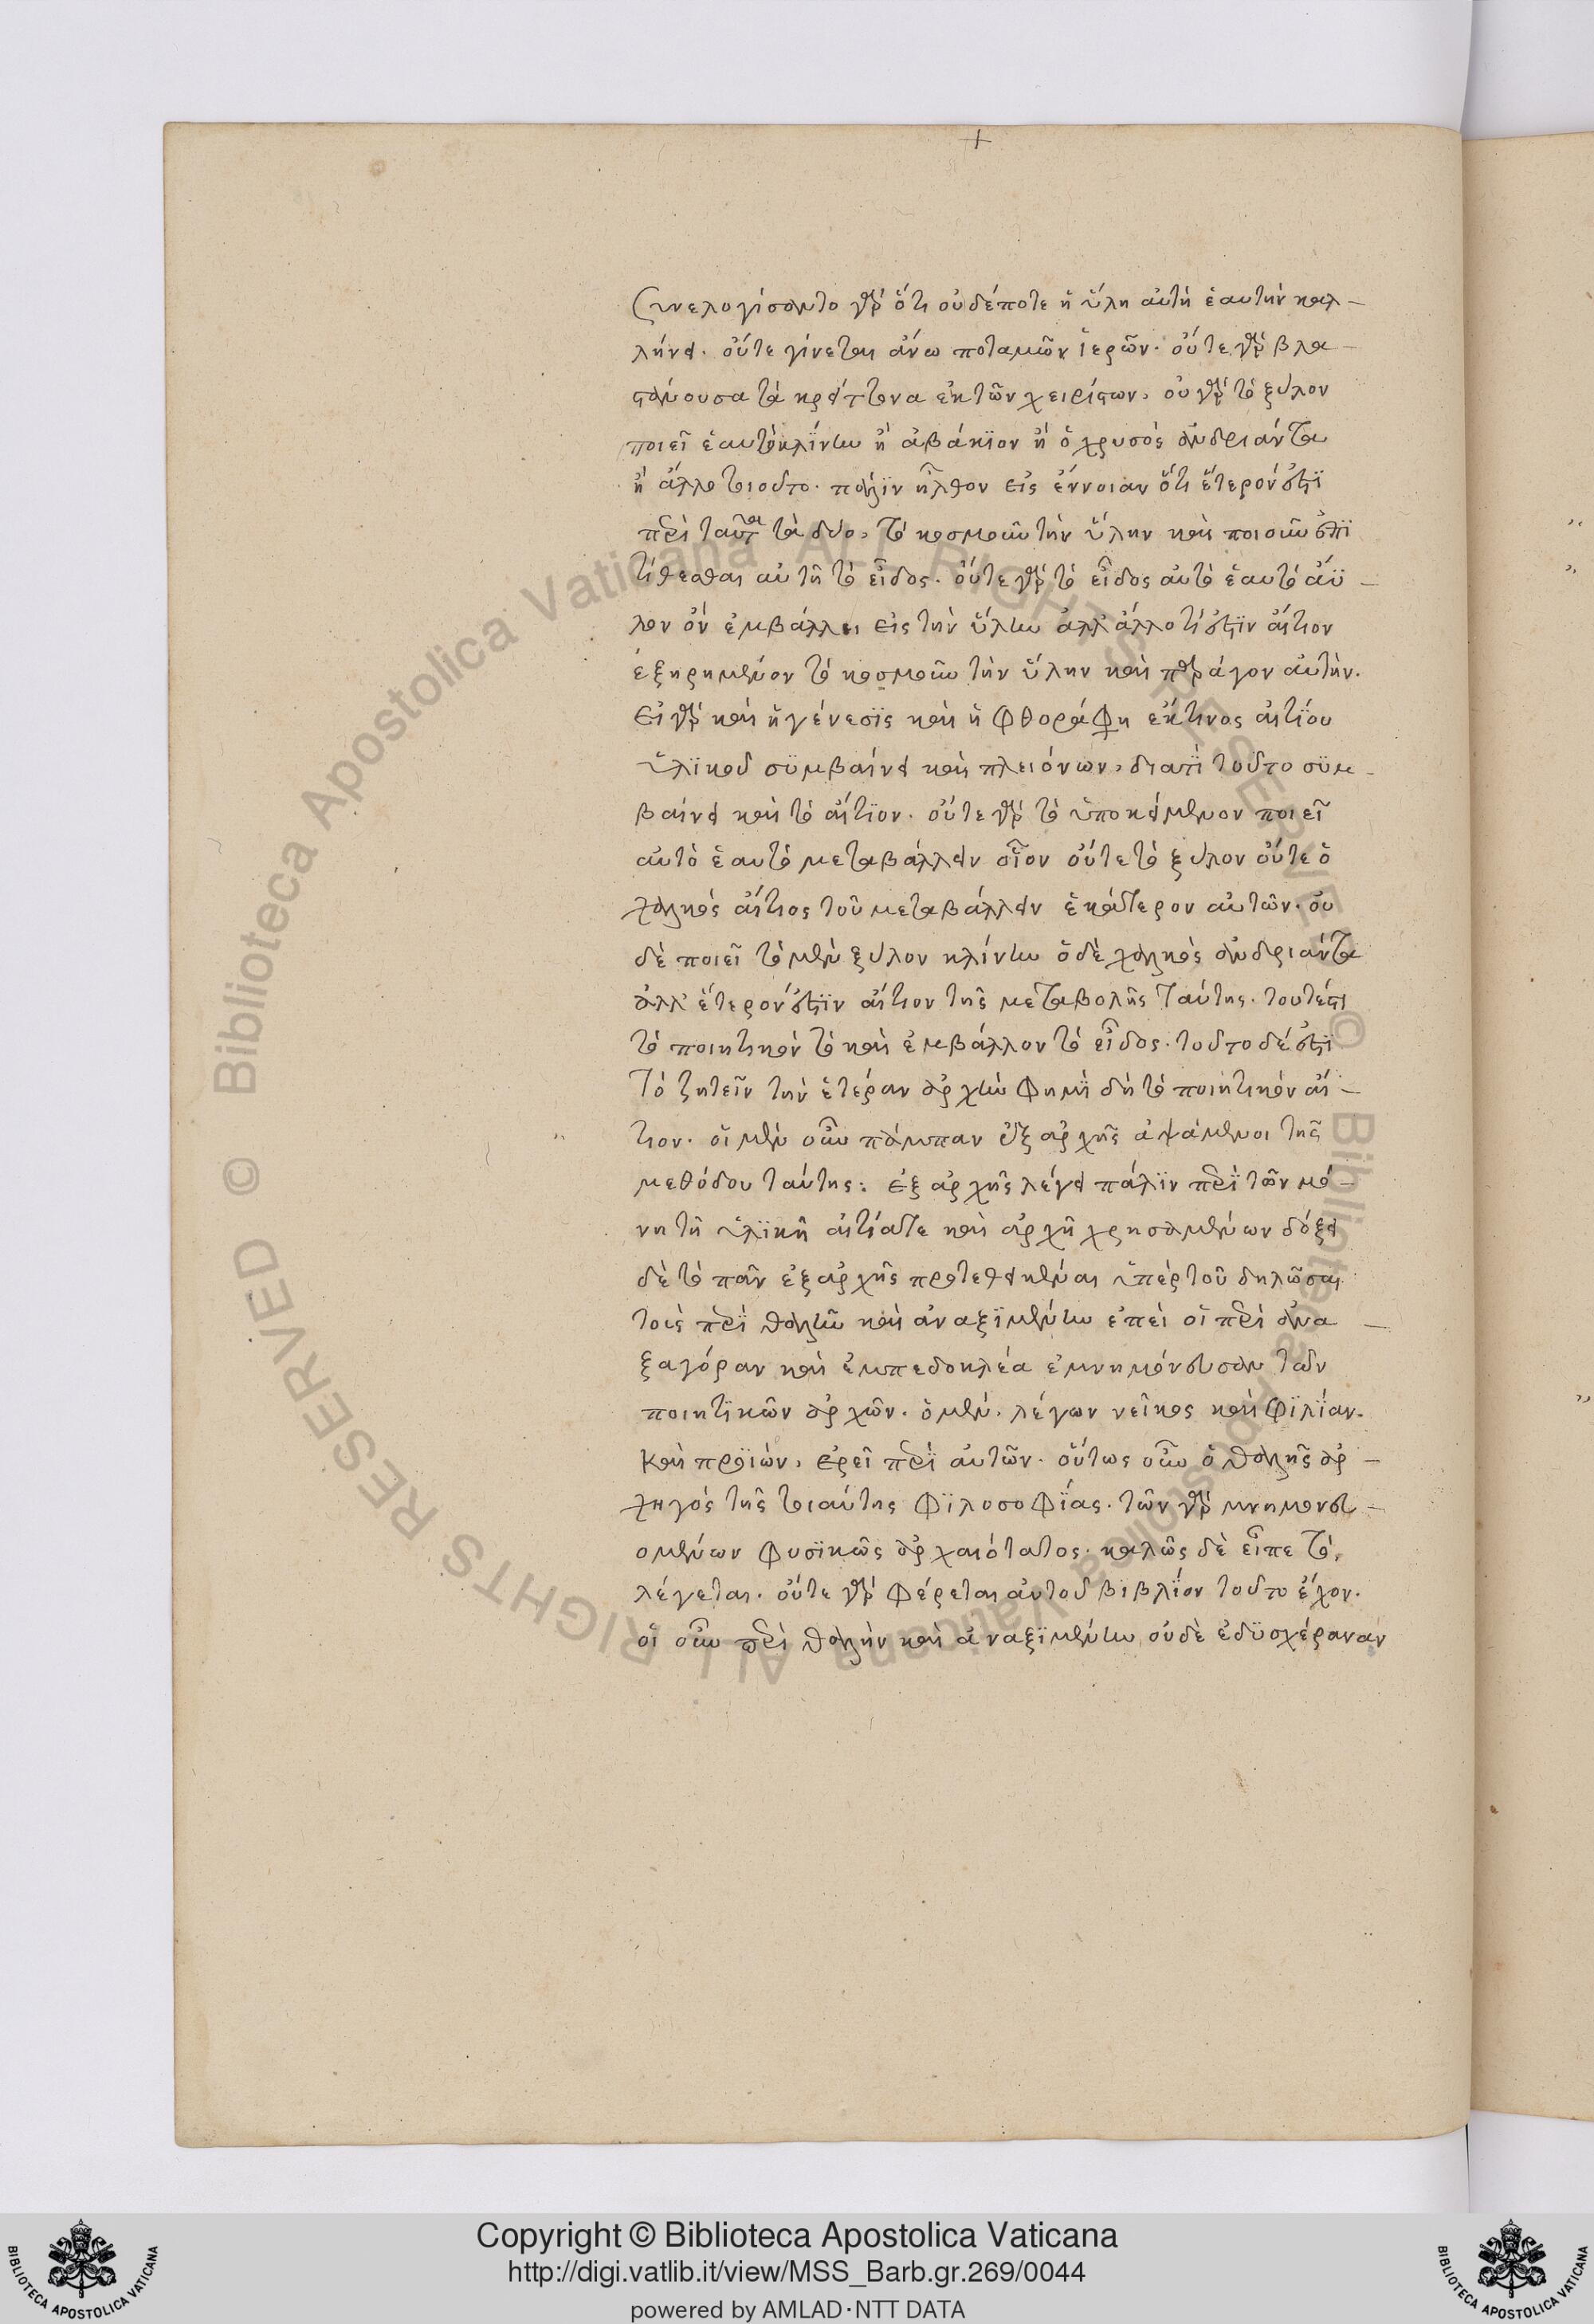 συνελογίσαντο γὰρ ὅτι οὐδέποτε ἡ ὕλη αὐτὴ ἑαυτὴν καλ-
λύνει. οὔτε γίνεται ἄνω ποταμῶν ἱερῶν. οὔτε γὰρ βλα-
στάνουσα τὰ κρείττονα ἐκ τῶν χειρίστων, οὐ γὰρ τὸ ξύλον
ποιεῖ ἑαυτὸ κλίνην ἢ ἀβάκιον ἢ ὁ χρυσὸς ἀνδριάντα
ἢ ἄλλο τοιοῦτο. πάλιν ἦλθον εἰς ἔννοιαν ὅτι ἕτερόν ἐστὶ
περὶ ταῦτα τὰ δύο, τὸ κοσμοῦν τὴν ὕλην καὶ ποιοῦν ἐπι
τίθεσθαι αὐτῇ τὸ εἶδος. οὔτε γὰρ τὸ εἶδος αὐτὸ ἑαυτὸ ἄϋ-
λον ὂν ἐμβάλλει εἰς τὴν ὕλην ἀλλ' ἄλλο τί ἐστιν αἴτιον
ἐξῃρημένον τὸ κοσμοῦν τὴν ὕλην καὶ παράγον αὐτήν.
εἰ γὰρ καὶ ἡ γένεσις καὶ ἡ φθορά φη ἔκ τινος αἰτίου
ὑλικοῦ συμβαίνει καὶ πλειόνων, διατί τοῦτο συμ-
βαίνει καὶ τὸ αἴτιον. οὔτε γὰρ τὸ ὑποκείμενον ποιεῖ
αὐτὸ ἑαυτὸ μεταβάλλειν οἷον οὔτε τὸ ξύλον οὔτε ὁ
χαλκὸς αἴτιος τοῦ μεταβάλλειν ἑκάτερον αὐτῶν. οὐ
δὲ ποιεῖ τὸ μὲν ξύλον κλίνην ὁ δὲ χαλκὸς ἀνδριάντα
ἀλλ' ἕτερόν ἐστιν αἴτιον τῆς μεταβολῆς ταύτης. τουτέστι
τὸ ποιητικὸν τὸ καὶ ἐμβάλλον τὸ εἶδος. τοῦτο δέ ἐστὶ
τὸ ζητεῖν τὴν ἑτέραν ἀρχὴν φημὶ δὴ τὸ ποιητικὸν αἴ-
τιον. οἱ μὲν οὖν πάμπαν ἐξ ἀρχῆς ἁψάμενοι τῆς
μεθόδου ταύτης: ἐξ ἀρχῆς λέγει πάλιν περὶ τῶν μό-
νῃ τῇ ὑλικῇ αἰτίᾳ τε καὶ ἀρχῇ χρησαμένων δόξει
δὲ τὸ πᾶν ἐξ ἀρχῆς προτεθεικέναι ὑπὲρ τοῦ δηλῶσαι
τοὺς περὶ θαλῆν καὶ ἀναξιμένην ἐπεὶ οἱ περὶ ἀνα-
ξαγόραν καὶ ἐμπεδοκλέα ἐμνημόνευσαν τῶν
ποιητικῶν ἀρχῶν. ὁ μὲν. λέγων νεῖκος καὶ φιλίαν.
καὶ προϊὼν, ἐρεῖ περὶ αὐτῶν. οὕτως οὖν ὁ θαλῆς ἀρ-
χηγὸς τῆς τοιαύτης φιλοσοφίας. τῶν γὰρ μνημονευ-
ομένων φυσικῶς ἀρχαιότατος. καλῶς δὲ εἶπε τὸ,
λέγεται. οὔτε γὰρ φέρεται αὐτοῦ βιβλίον τοῦτο ἔχον.
οἱ οὖν περὶ θαλὴν καὶ ἀναξιμένην οὐδὲ ἐδυσχέραναν
Copyright © Biblioteca Apostolica Vaticana
http://digi.vatlib.it/view/MSS_Barb.gr.269/0044
powered by AMLAD·NTT DATA